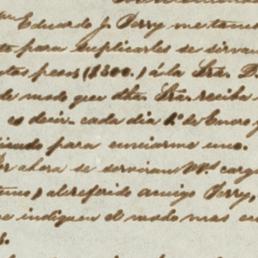 Eduardo J. Terry me toma
para suplicarles se sirvan
pesos ($500.) á la Sra. D.
de modo que dha. Sra. reciba
es decir, cada dia 1º de Enero y
para enviarme uno.
ahora se serviran Vs. carg
al referido amigo Terry,
indiquen el modo mas